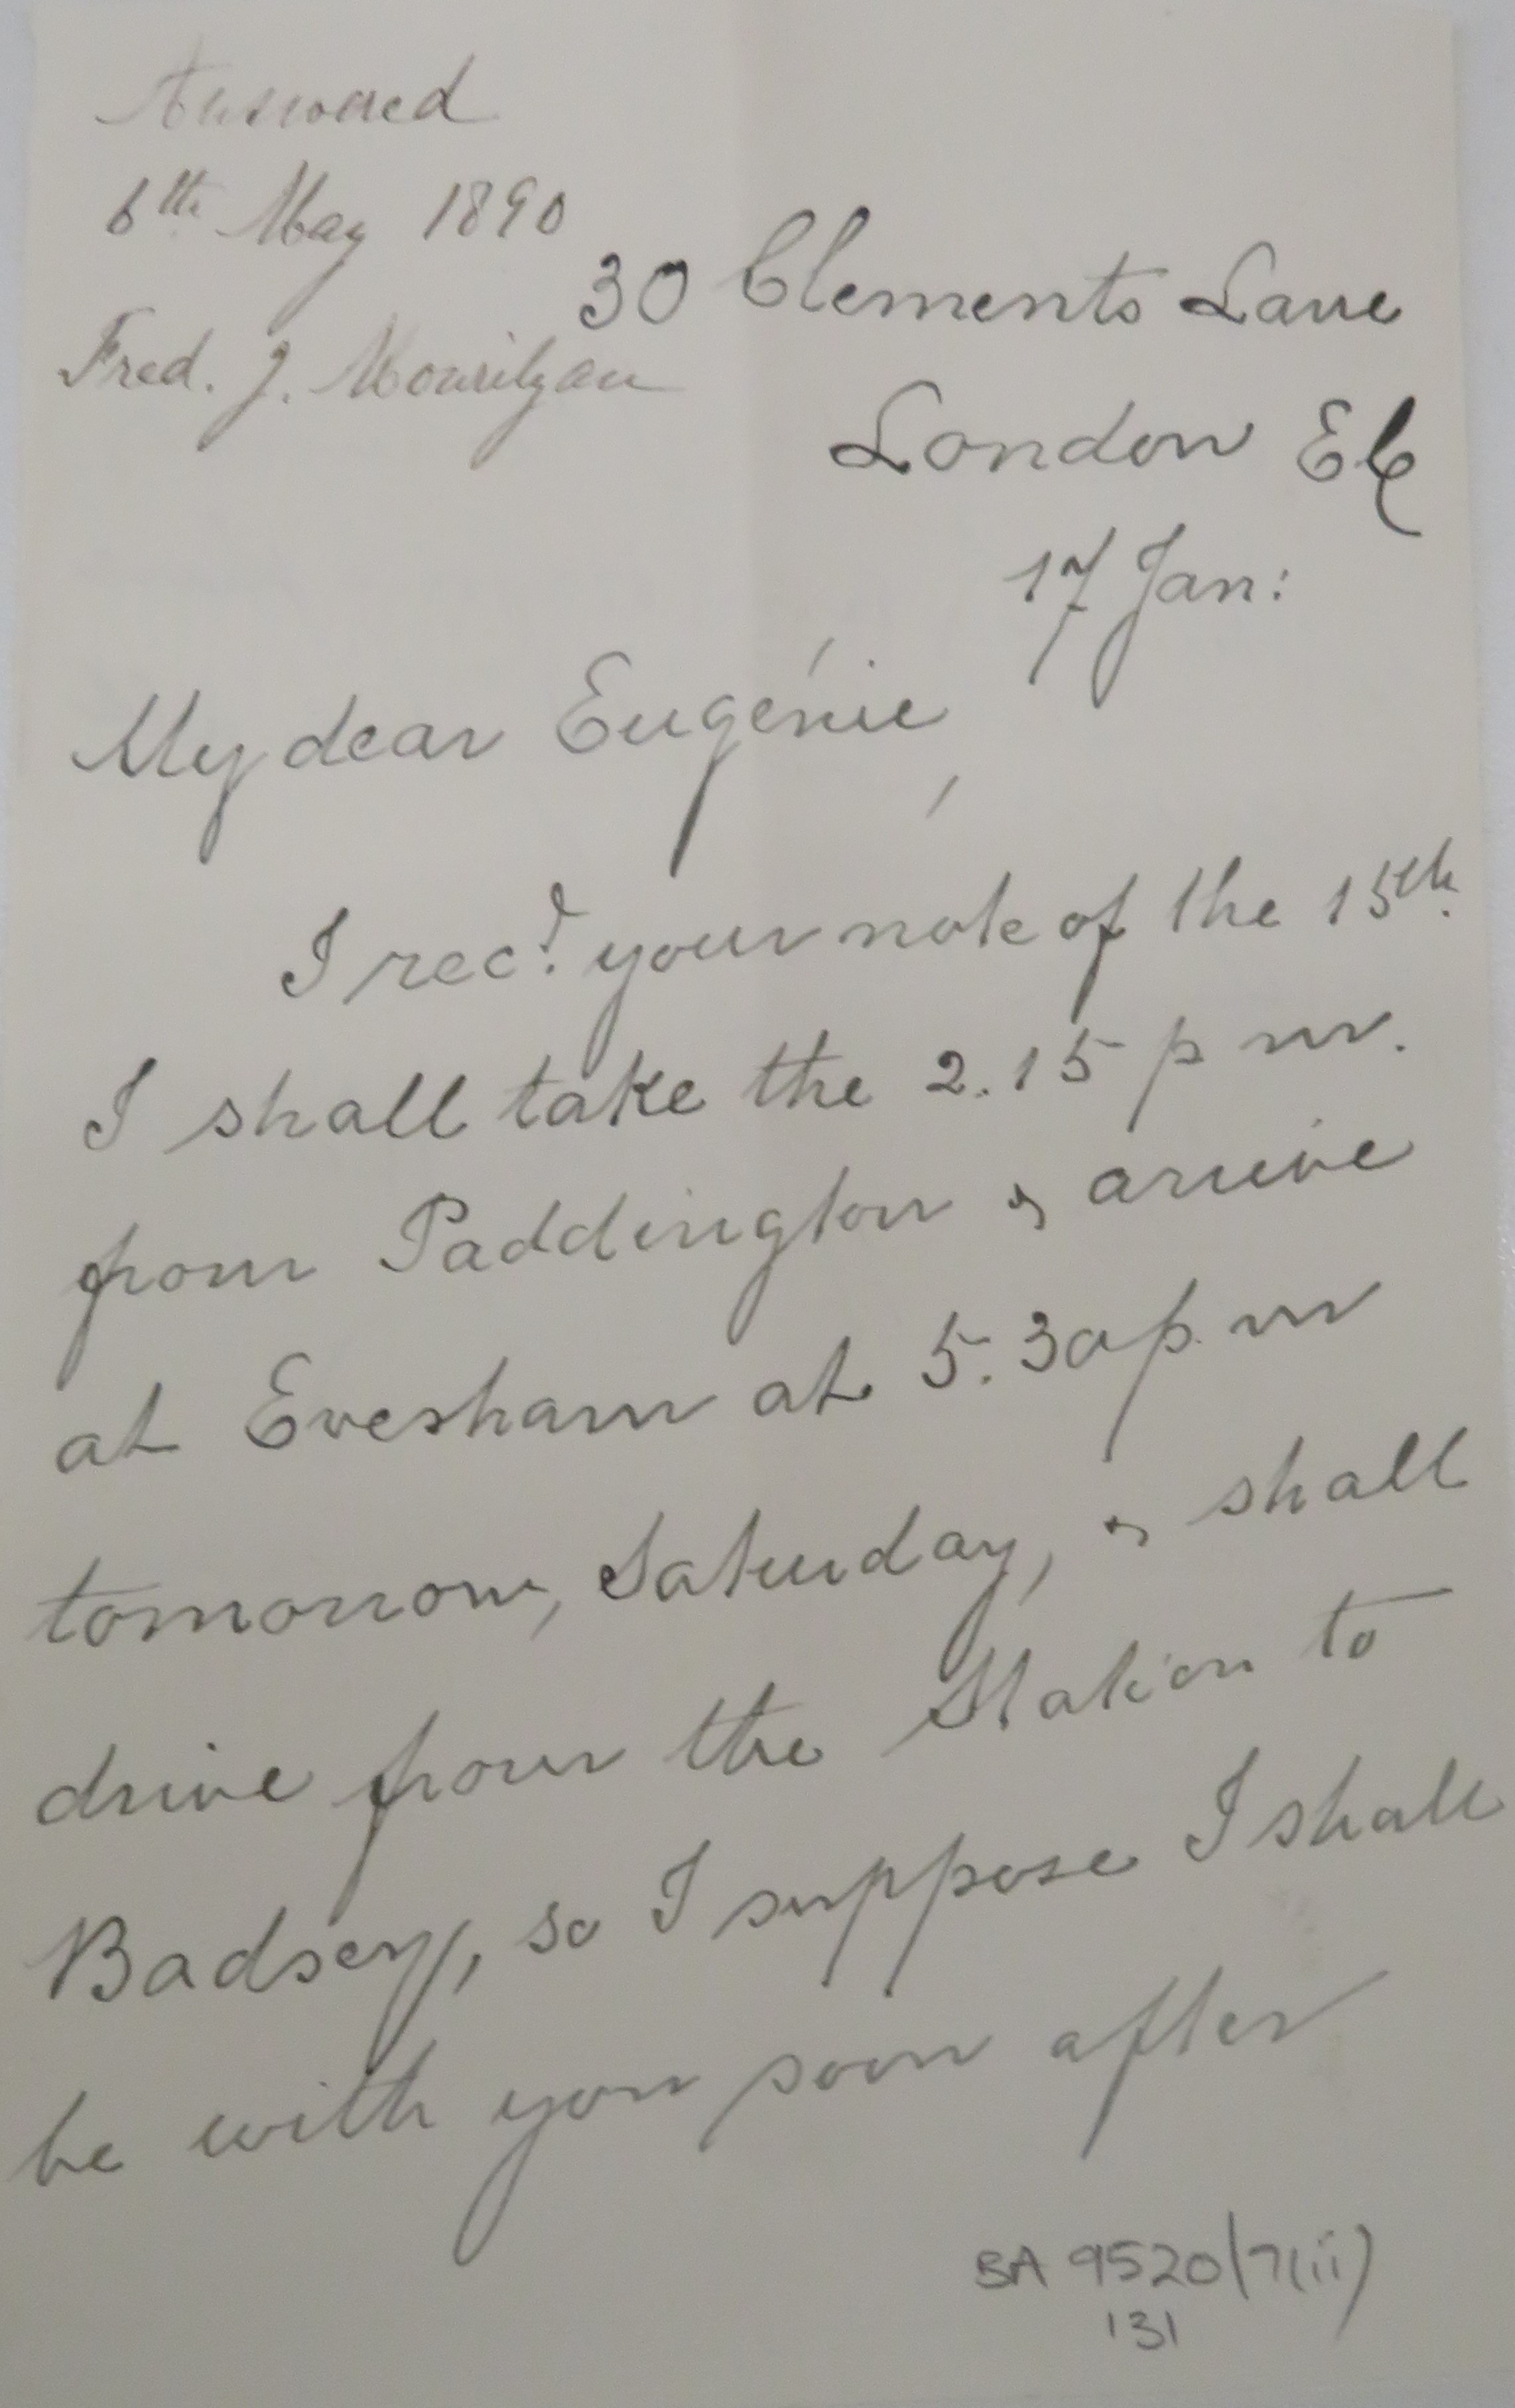 Answered
6th May 1890
Fred. J. Mourilyan
30 Clements Lane
London EC
17 Jan:
My dear Eugénie,
I recd. your note of the 15th.
I shall take the 2.15 p m.
from Paddington & arrive
at Evesham at 5.30 p.m
tomorrow, Saturday, & shall
drive from the Station to
Badsey, so I suppose I shall
be with you soon after
BA 9520/7(ii)
131